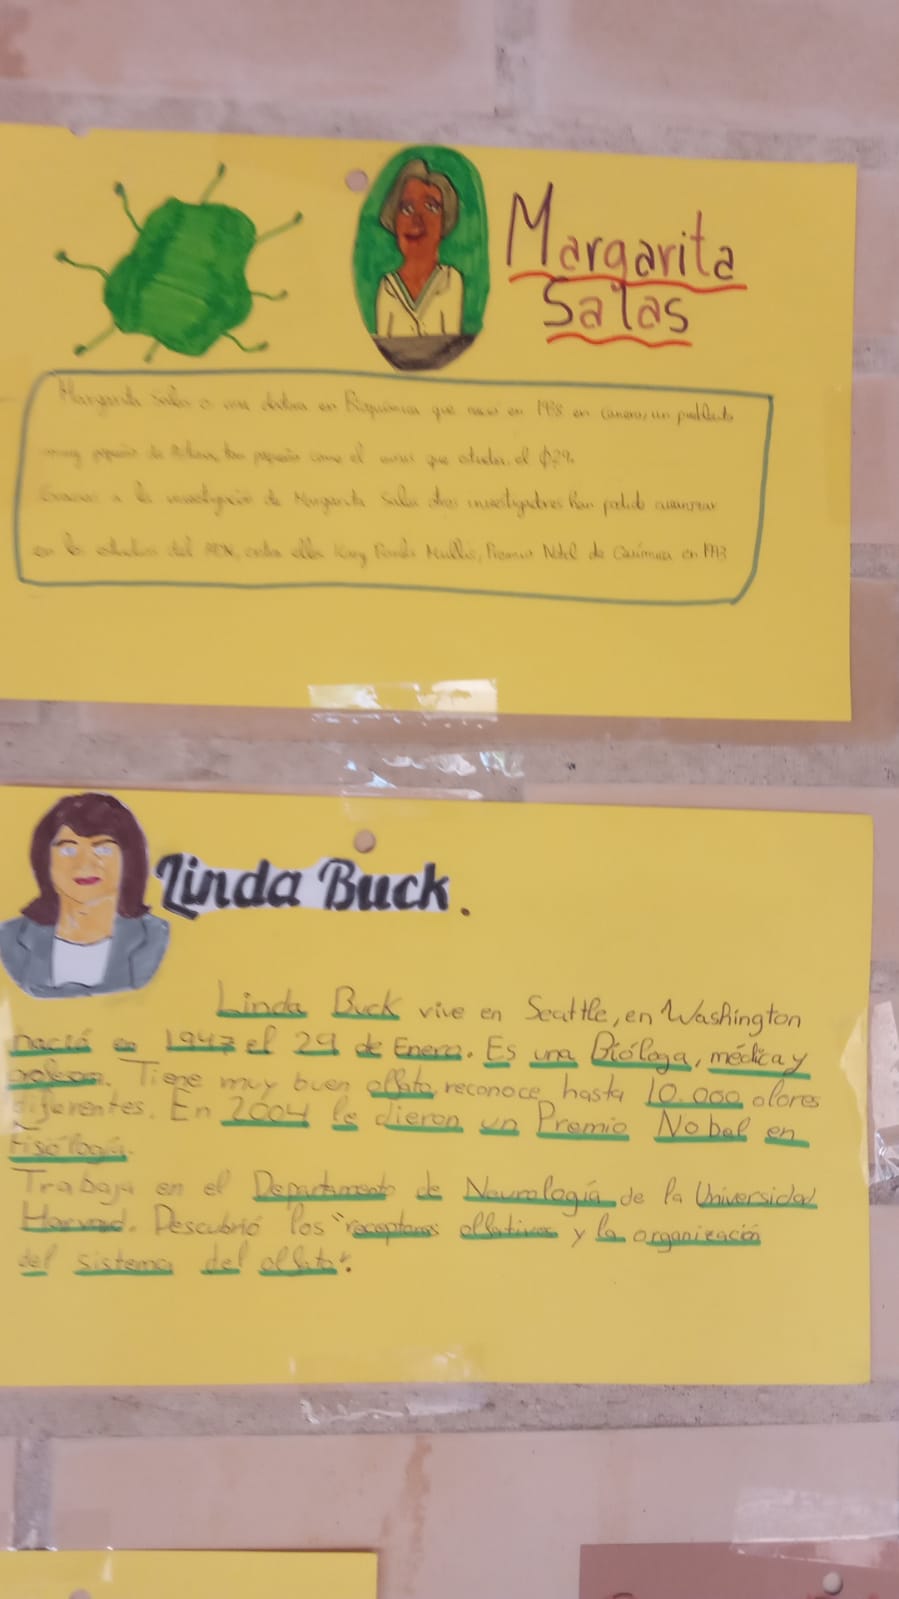 Margarita
Salas
Margarita Salas es una doctora en Bioquímica que nació en 1938 en Canero, un pueblecito
muy pequeño de Asturias, tan pequeño como el virus que estudia, el φ29.
Gracias a la investigación de Margarita Salas otros investigadores han podido avanzar
en los estudios del ADN, entre ellos Kary Mullis, Premio Nobel de Química en 1993
Linda Buck.
Linda Buck vive en Seattle, en Washington
nació en 1947 el 29 de Enero. Es una Bióloga, médica y
profesora. Tiene muy buen olfato, reconoce hasta 10.000 olores
diferentes. En 2004 le dieron un Premio Nobel en
Fisiología.
Trabaja en el Departamento de Neurología de la Universidad
Harvard. Descubrió los "receptores olfativos y la organización
del sistema del olfato".